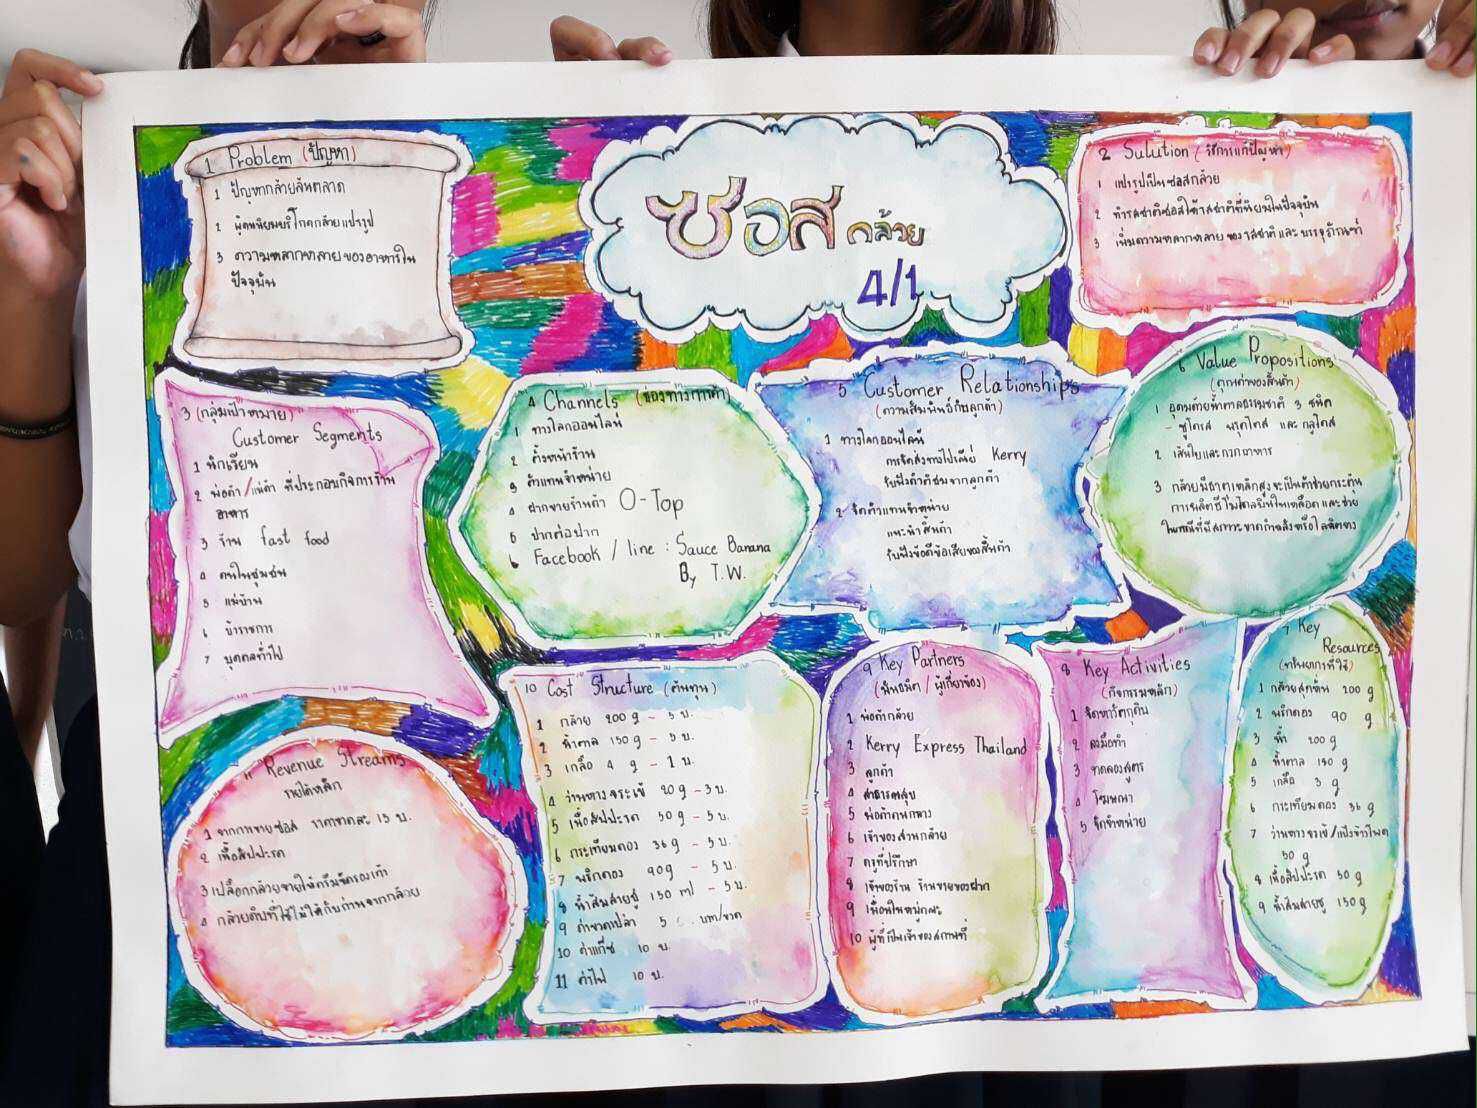 ซอสกล้วย
4/1
1 Problem (ปัญหา)
1 ปัญหากล้วยล้นตลาด
2 ผู้คนนิยมบริโภคกล้วยแปรรูป
3 ความหลากหลายของอาหารใน
ปัจจุบัน
2 Sulution (วิธีการแก้ปัญหา)
1 แปรรูปเป็นซอสกล้วย
2 ทำรสชาติซอสให้รสชาติที่นิยมในปัจจุบัน
3 เพิ่มความหลากหลายของรสชาติและบรรจุภัณฑ์
3 (กลุ่มเป้าหมาย)
Customer Segments
1 นักเรียน
2 พ่อค้า/แม่ค้า ที่ประกอบกิจการร้าน
อาหาร
3 ร้าน fast food
4 คนในชุมชน
5 แม่บ้าน
6 ข้าราชการ
7 บุคคลทั่วไป
4 Channels (ช่องทางการค้า)
1 ทางโลกออนไลน์
2 ตั้งหน้าร้าน
3 ตัวแทนจำหน่าย
4 ฝากขายร้านค้า O-Top
5 ปากต่อปาก
6 Facebook / line : Sauce Banana
By T.W.
5 Customer Relationships
(ความสัมพันธ์กับลูกค้า)
1 ทางโลกออนไลน์
การจัดส่งทางไปรษณีย์ Kerry
รับฟังคำติชมจากลูกค้า
2 จัดตัวแทนจำหน่าย
แนะนำสินค้า
รับฟังข้อดีข้อเสียของสินค้า
6 Value Propositions
(คุณค่าของสินค้า)
1 อุดมด้วยน้ำตาลธรรมชาติ 3 ชนิด
- ซูโครส ฟรุคโทส และ กลูโคส
2 เส้นใยและกากอาหาร
3 กล้วยมีธาตุเหล็กสูงจะเป็นตัวช่วยกระตุ้น
การผลิตฮีโมโกลบินในเลือดและช่วย
ในกรณีที่มีสภาวะขาดกำลังหรือโลหิตจาง
7 Key
Resources
(ทรัพยากรที่ใช้)
1 กล้วยสุกหั่น 200 g
2 พริกดอง 90 g
3 น้ำ 200 g
4 น้ำตาล 150 g
5 เกลือ 3 g
6 กระเทียมดอง 36 g
7 ว่านหางจระเข้/แป้งข้าวโพด
50 g
8 เนื้อสัปปะรด 50 g
9 น้ำส้มสายชู 150 g
8 Key Activities
(กิจกรรมหลัก)
1 จัดหาวัตถุดิบ
2 ลงมือทำ
3 ทดลองสูตร
4 โฆษณา
5 จัดจำหน่าย
9 Key Partners
(พันธมิตร / ผู้เกี่ยวข้อง)
1 พ่อค้ากล้วย
2 Kerry Express Thailand
3 ลูกค้า
4 สาธารณสุข
5 พ่อค้าคนกลาง
6 เจ้าของสวนกล้วย
7 ครูที่ปรึกษา
8 เจ้าของร้าน ร้านขายของฝาก
9 เพื่อนในหมู่คณะ
10 ผู้ที่เป็นเจ้าของสถานที่
10 Cost Structure (ต้นทุน)
1 กล้วย 200 g - 5 บ.
2 น้ำตาล 150 g - 5 บ.
3 เกลือ 4 g - 1 บ.
4 ว่านหางจระเข้ 90 g - 3 บ.
5 เนื้อสัปปะรด 50 g - 5 บ.
6 กระเทียมดอง 36 g - 5 บ.
7 พริกดอง 90 g - 5 บ.
8 น้ำส้มสายชู 150 ml - 5 บ.
9 ค่าขวดเปล่า 5 บาท/ขวด
10 ค่าแก๊ซ 10 บ.
11 ค่าไฟ 10 บ.
11 Revenue Streams
รายได้หลัก
1 จากการขายซอส ราคาขวดละ 15 บ.
2 เนื้อสัปปะรด
3 เปลือกกล้วยขายให้ครีมขัดรองเท้า
4 กล้วยดิบที่ใช้ไม่ได้กับถ่านจากกล้วย